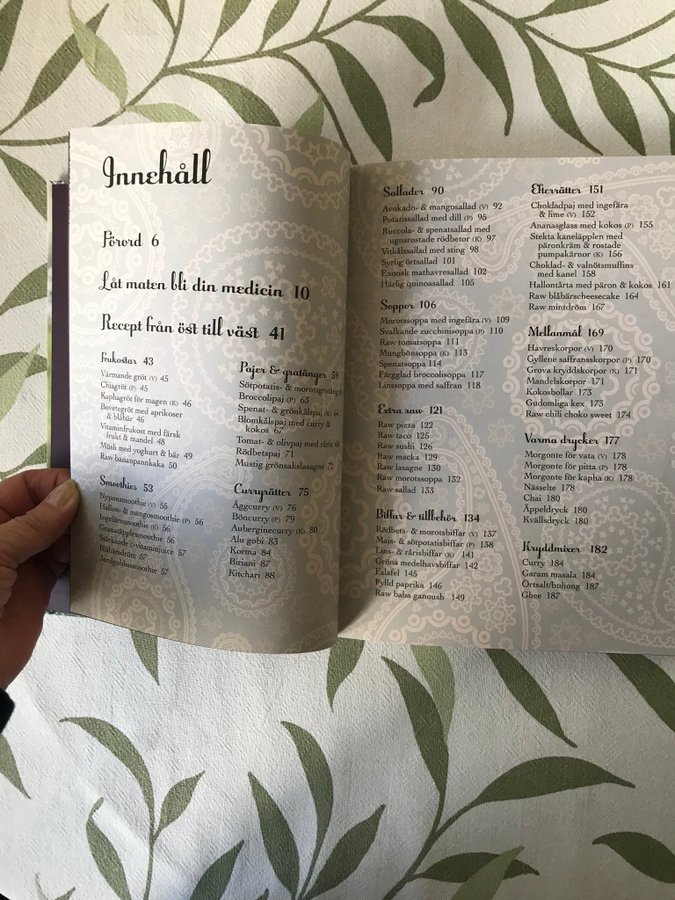 Innehåll
Förord 6
Låt maten bli din medicin 10
Recept från öst till väst 41
Frukostar 43
Värmande gröt (V) 45
Chiagröt (P) 45
Kaphagröt för magen (K) 46
Bovetegröt med aprikoser
& blåbär 46
Vitaminfrukost med färsk
frukt & mandel 48
Müsli med yoghurt & bär 49
Raw bananpannkaka 50
Smoothies 53
Nyponsmoothie (V) 55
Hallon- & mangosmoothie (P) 56
Ingefärssmoothie (K) 56
Granatäpplesmoothie 56
Stärkande c-vitaminjuice 57
Blåbärsdröm 57
Jordgubbssmoothie 57
Pajer & gratänger 59
Sötpotatis- & morotsgratäng
Broccolipaj (P) 63
Spenat- & grönkålspaj (K) 64
Blomkålspaj med curry &
kokos 67
Tomat- & olivpaj med räm 68
Rödbetspaj 71
Mustig grönsakslasagne 71
Curryrätter 75
Äggcurry (V) 76
Böncurry (P) 79
Auberginecurry (K) 80
Alu gobi 83
Korma 84
Biriani 87
Kitchari 88
Sallader 90
Avokado- & mangosallad (V) 92
Potatissallad med dill (P) 95
Ruccola- & spenatsallad med
ugnsrostade rödbetor (K) 97
Vitkålssallad med sting 98
Syrlig örtsallad 101
Exotisk mathavresallad 102
Härlig quinoasallad 105
Soppor 106
Morotssoppa med ingefära (V) 109
Svalkande zucchinisoppa (P) 110
Raw tomatsoppa 111
Mungbönsoppa (K) 113
Spenatsoppa 114
Färgglad broccolisoppa 117
Linssoppa med saffran 118
Extra raw 121
Raw pizza 122
Raw taco 125
Raw sushi 126
Raw macka 129
Raw lasagne 130
Raw morotssoppa 132
Raw sallad 133
Biffar & tillbehör 134
Rödbets- & morotsbiffar (V) 137
Majs- & sötpotatisbiffar (P) 138
Lins- & rårisbiffar (K) 141
Gröna medelhavsbiffar 142
Falafel 145
Fylld paprika 146
Raw baba ganoush 149
Efterrätter 151
Chokladpaj med ingefära
& lime (V) 152
Ananasglass med kokos (P) 155
Stekta kaneläpplen med
päronkräm & rostade
pumpakärnor (K) 156
Choklad- & valnötsmuffins
med kanel 158
Hallontårta med päron & kokos 161
Raw blåbärscheesecake 164
Raw mintdröm 167
Mellanmål 169
Havreskorpor (V) 170
Gyllene saffransskorpor (P) 170
Grova kryddskorpor (K) 171
Mandelskorpor 171
Kokosbollar 173
Gudomliga kex 173
Raw chili choko sweet 174
Varma drycker 177
Morgonte för vata (V) 178
Morgonte för pitta (P) 178
Morgonte för kapha (K) 178
Nässelte 178
Chai 180
Äppeldryck 180
Kvällsdryck 180
Kryddmixer 182
Curry 184
Garam masala 184
Örtsalt/buljong 187
Ghee 187